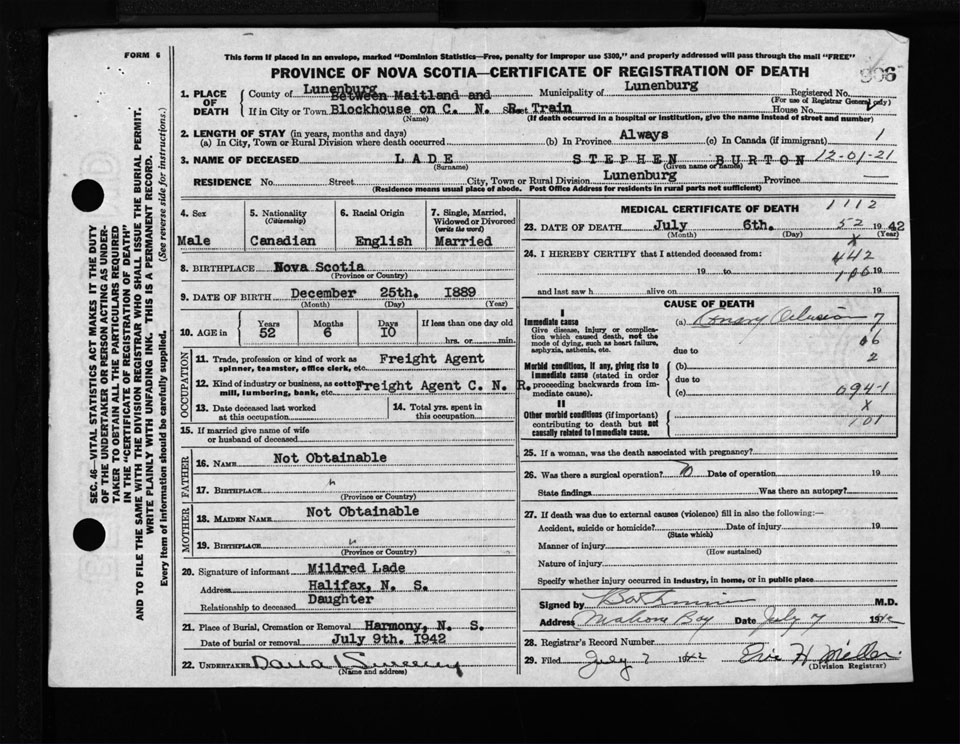 FORM 6
This form if placed in an envelope, marked "Dominion Statistics—Free, penalty for improper use $300," and properly addressed will pass through the mail "FREE"
PROVINCE OF NOVA SCOTIA—CERTIFICATE OF REGISTRATION OF DEATH
906
1. PLACE OF DEATH
County of Lunenburg Municipality of Lunenburg Registered No.
(For use of Registrar General only)
If in City or Town Between Maitland and Blockhouse on C. N. R. Train Street House No.
(Name) (If death occurred in a hospital or institution, give the name instead of street and number)
2. LENGTH OF STAY (in years, months and days)
(a) In City, Town or Rural Division where death occurred (b) In Province Always (c) In Canada (if immigrant) 1
3. NAME OF DECEASED LADE STEPHEN BURTON 12-01-21
(Surname) (Given name or names)
RESIDENCE No. Street City, Town or Rural Division Lunenburg Province
(Residence means usual place of abode. Post Office Address for residents in rural parts not sufficient)
SEC. 46—VITAL STATISTICS ACT MAKES IT THE DUTY
OF THE UNDERTAKER OR PERSON ACTING AS UNDER-
TAKER TO OBTAIN ALL THE PARTICULARS REQUIRED
IN THE "CERTIFICATE OF REGISTRATION OF DEATH"
AND TO FILE THE SAME WITH THE DIVISION REGISTRAR WHO SHALL ISSUE THE BURIAL PERMIT.
WRITE PLAINLY WITH UNFADING INK. THIS IS A PERMANENT RECORD.
Every item of information should be carefully supplied. (See reverse side for instructions.)
4. Sex
Male
5. Nationality
(Citizenship)
Canadian
6. Racial Origin
English
7. Single, Married,
Widowed or Divorced
(write the word)
Married
8. BIRTHPLACE Nova Scotia
(Province or Country)
9. DATE OF BIRTH December 25th. 1889
(Month) (Day) (Year)
10. AGE in
Years Months Days If less than one day old
52 6 10
hrs. or min.
OCCUPATION
11. Trade, profession or kind of work as Freight Agent
spinner, teamster, office clerk, etc.
12. Kind of industry or business, as cotton Freight Agent C. N. R.
mill, lumbering, bank, etc.
13. Date deceased last worked
at this occupation
14. Total yrs. spent in
this occupation
15. If married give name of wife
or husband of deceased
FATHER
16. NAME Not Obtainable
17. BIRTHPLACE "
(Province or Country)
MOTHER
18. MAIDEN NAME Not Obtainable
19. BIRTHPLACE "
(Province or Country)
20. Signature of informant Mildred Lade
Address Halifax, N. S.
Relationship to deceased Daughter
21. Place of Burial, Cremation or Removal Harmony, N. S.
Date of burial or removal July 9th. 1942
22. UNDERTAKER Sweeny
(Name and address)
MEDICAL CERTIFICATE OF DEATH 1112
23. DATE OF DEATH July 6th. 52 1942
(Month) (Day) (Year)
x
24. I HEREBY CERTIFY that I attended deceased from: 442
19 to 106 19
and last saw h alive on 19
CAUSE OF DEATH
I
Immediate cause
Give disease, injury or complica-
tion which caused death, not the
mode of dying, such as heart failure,
asphyxia, asthenia, etc.
(a) Coronary Occlusion 7
06
due to
2
Morbid conditions, if any, giving rise to
immediate cause (stated in order
proceeding backwards from im-
mediate cause).
(b)
due to
(c) 094-1
x
II
Other morbid conditions (if important)
contributing to death but not
causally related to immediate cause.
101
25. If a woman, was the death associated with pregnancy?
26. Was there a surgical operation? no Date of operation 19
State findings Was there an autopsy?
27. If death was due to external causes (violence) fill in also the following:—
Accident, suicide or homicide? Date of injury 19
(State which)
Manner of injury
(How sustained)
Nature of injury
Specify whether injury occurred in industry, in home, or in public place
Signed by M.D.
Address Mahone Bay Date July 7 1942
28. Registrar's Record Number
29. Filed July 7 1942 H
(Division Registrar)